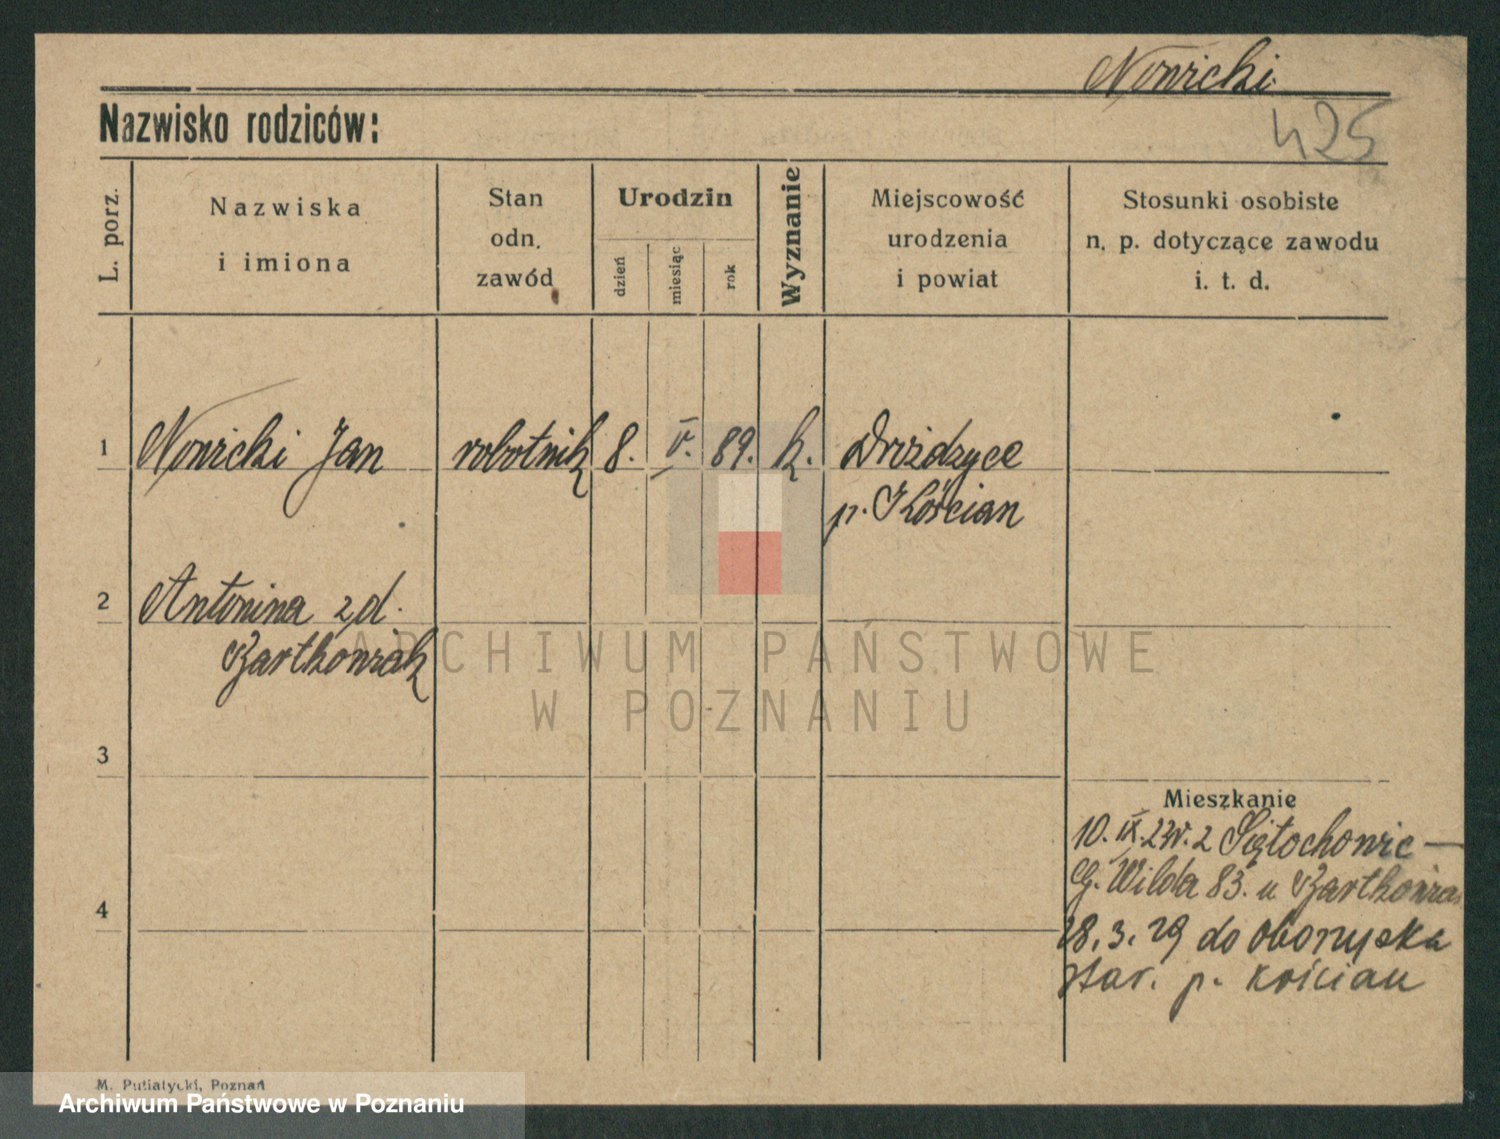 Nowicki
Nazwisko rodziców:
425
L. porz.
Nazwiska
i imiona
Stan
odn.
zawód
Urodzin
dzień
miesiąc
rok
Wyznanie
Miejscowość
urodzenia
i powiat
Stosunki osobiste
n. p. dotyczące zawodu
i. t. d.
1 Nowicki Jan robotnik 8. V. 89. k. Drożdzyce
p. Kościan
2 Antonina z d.
Bartkowiak
ARCHIWUM PAŃSTWOWE
W POZNANIU
3
Mieszkanie
10. IX. 23r. z
G. Wilda 83. u Bartkowia
4
28. 3. 29 do
p. Kościan
M. Putiatycki, Poznań
Archiwum Państwowe w Poznaniu